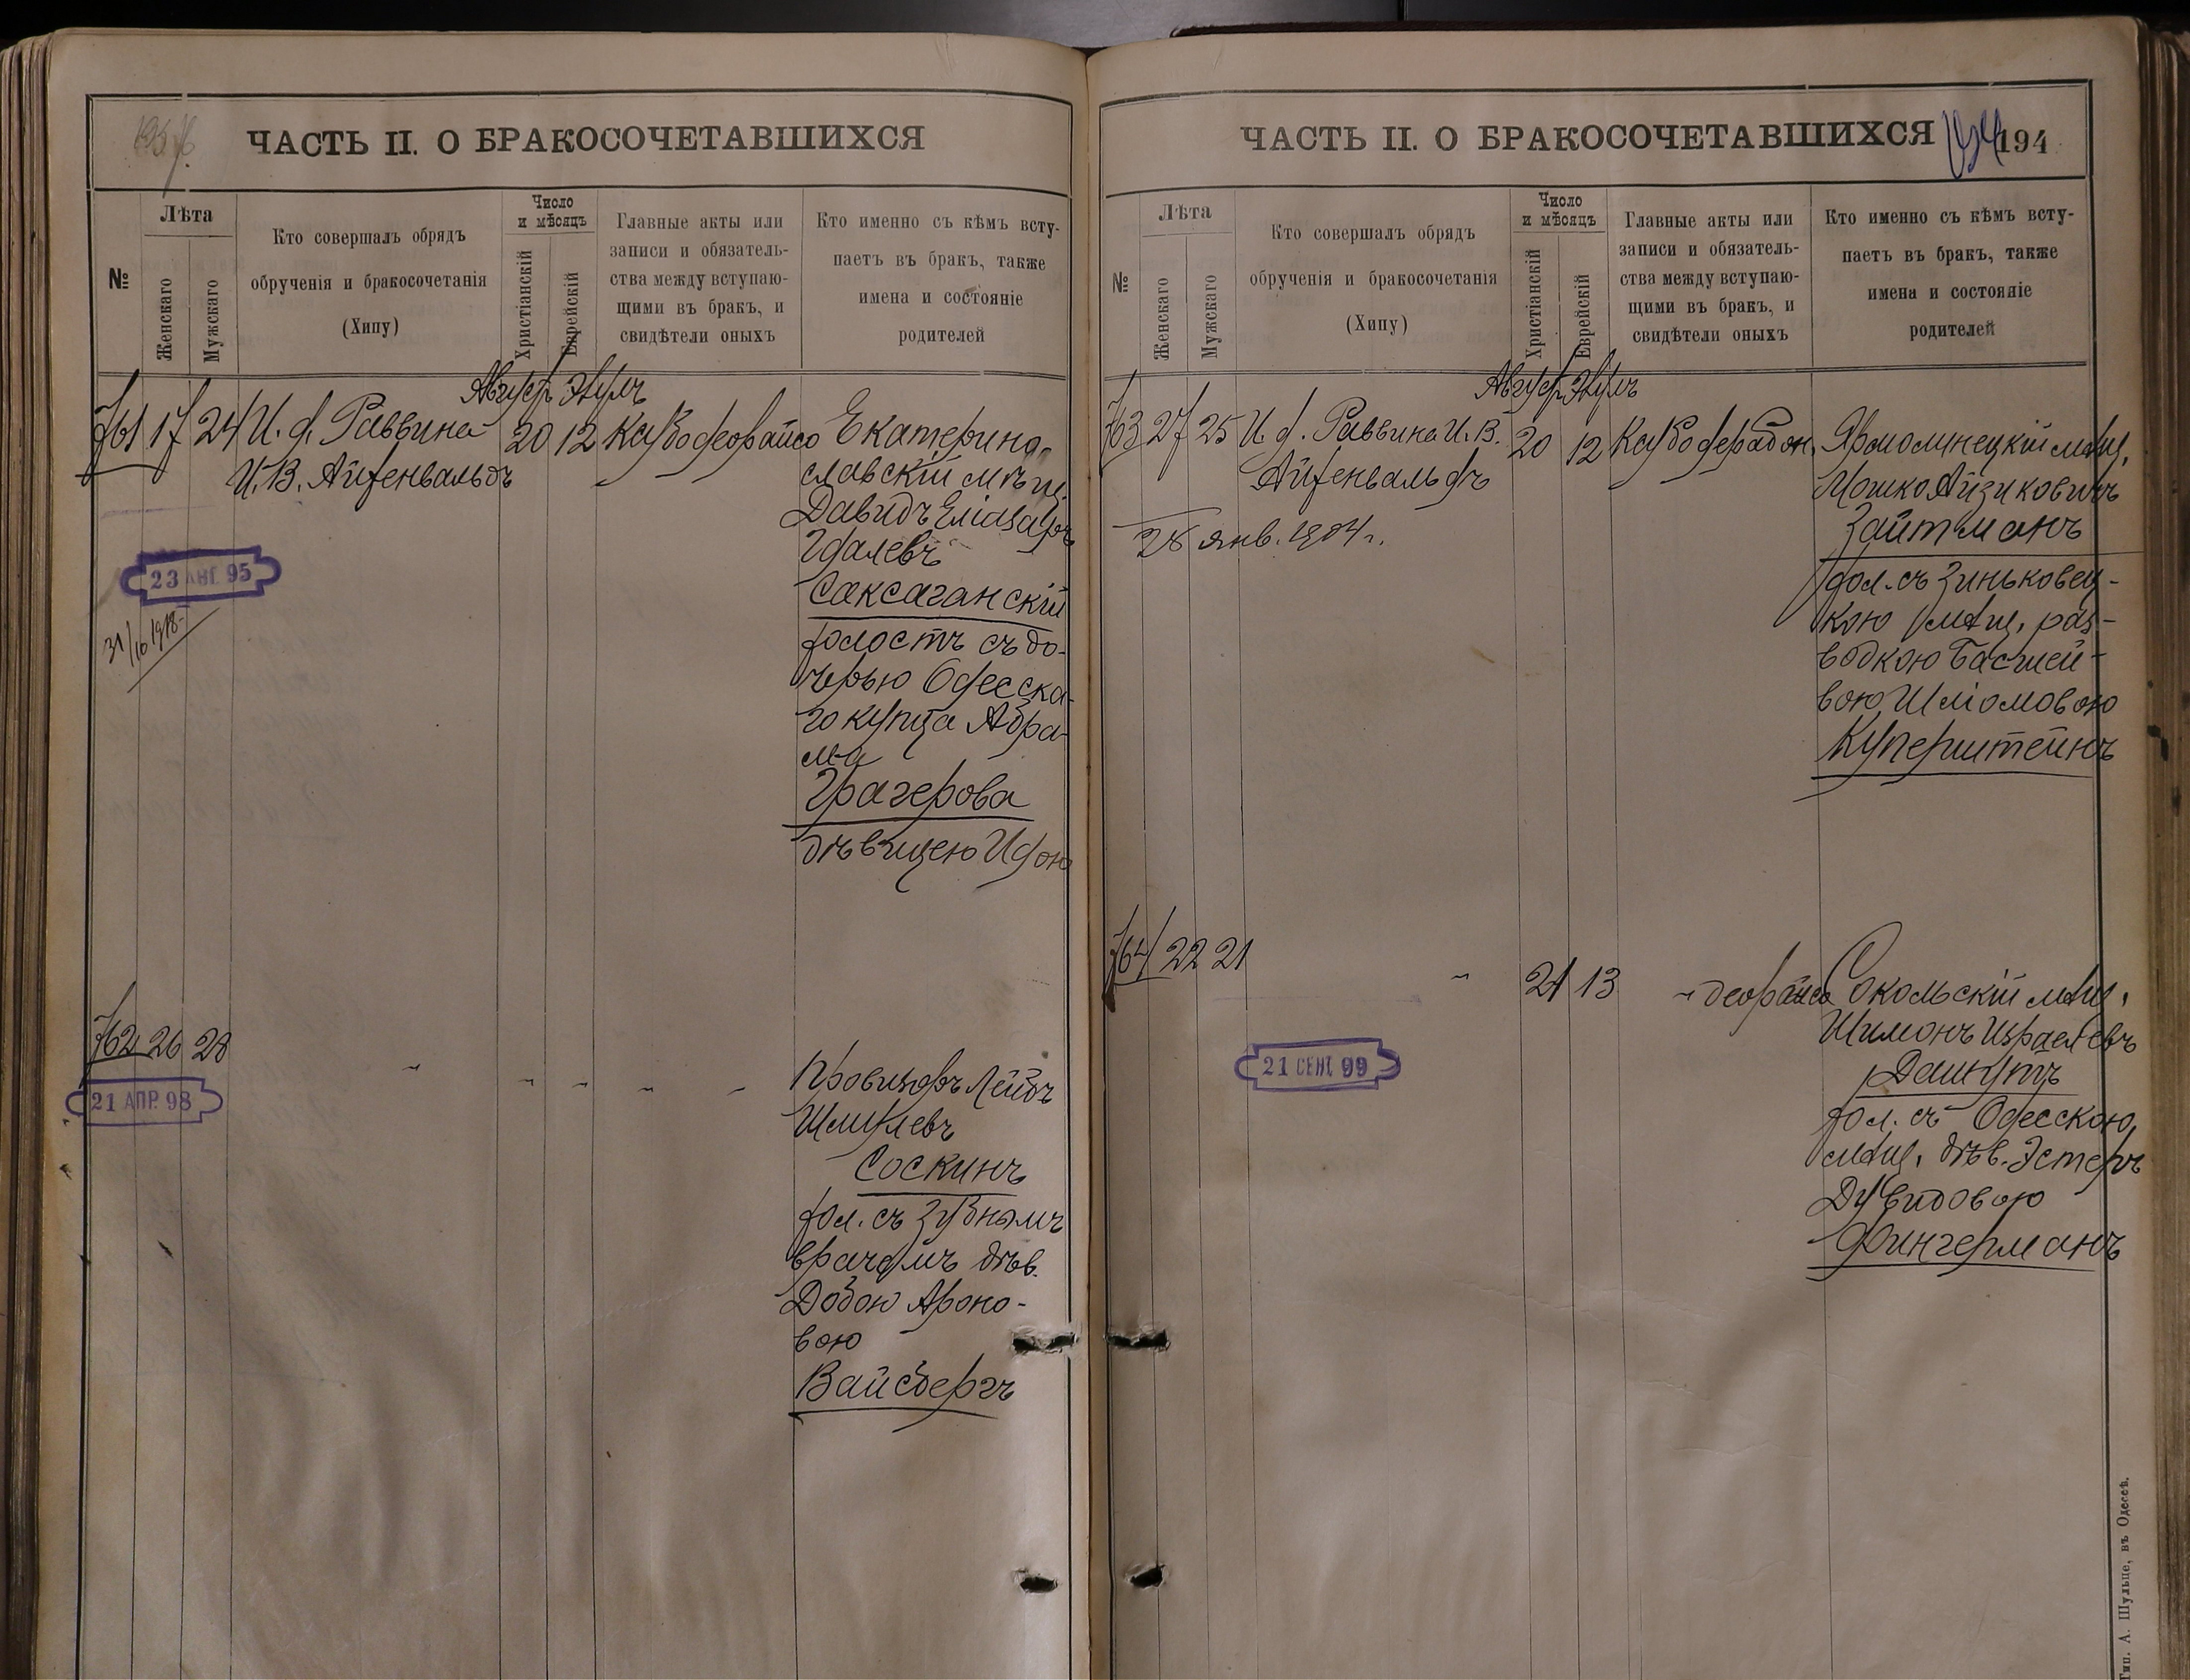 ЧАСТЬ II. О БРАКОСОЧЕТАВШИХСЯ
№
Лѣта
Женскаго
Мужскаго
Кто совершалъ обрядъ
обрученія и бракосочетанія
(Хипу)
Число
и мѣсяцъ
Христіанскій
Еврейскій
Главные акты или
записи и обязатель-
ства между вступаю-
щими въ бракъ, и
свидѣтели оныхъ
Кто именно съ кѣмъ всту-
паетъ въ бракъ, также
имена и состояніе
родителей
761 17 24 И. д. Раввина
И. В. Айзенвальдъ
Август Элулъ
20 12
Екатерино-
славскій мѣщ.
Давидъ Еліазаръ
Гдалевъ
Саксаганскій
холостъ съ до-
черью Одесска-
го купца Абра-
ма
Грагерова
дѣвицею Идою
23 АВГ. 95
31/10 1918
762 26 28 " " " " "
Провизоръ Лейбъ
Шмилевъ
Соскинъ
хол. съ зубнымъ
врачемъ дѣв.
Добою Ароно-
вою
Вайсбергъ
21 АПР. 98
ЧАСТЬ II. О БРАКОСОЧЕТАВШИХСЯ
194
№
Лѣта
Женскаго
Мужскаго
Кто совершалъ обрядъ
обрученія и бракосочетанія
(Хипу)
Число
и мѣсяцъ
Христіанскій
Еврейскій
Главные акты или
записи и обязатель-
ства между вступаю-
щими въ бракъ, и
свидѣтели оныхъ
Кто именно съ кѣмъ всту-
паетъ въ бракъ, также
имена и состояніе
родителей
763 27 25 И. д. Раввина И. В.
Айзенвальдъ
Август Элулъ
20 12
28 янв. 1904 г.
Ярмолинецкій мѣщ.
Мошко Айзиковичъ
Зайтманъ
хол. съ Зиньковец-
кою мѣщ. раз-
водкою Басшей-
вою Шліомовою
Куперштейнъ
764 22 21 " 21 13 "
Сокольскій мѣщ.
Шимонъ Израелевъ
Дашутъ
хол. съ Одесскою
мѣщ. дѣв. Эстеръ
Дувидовою
Фингерманъ
21 СЕНТ. 99
Тип. А. Шульце, въ Одессѣ.